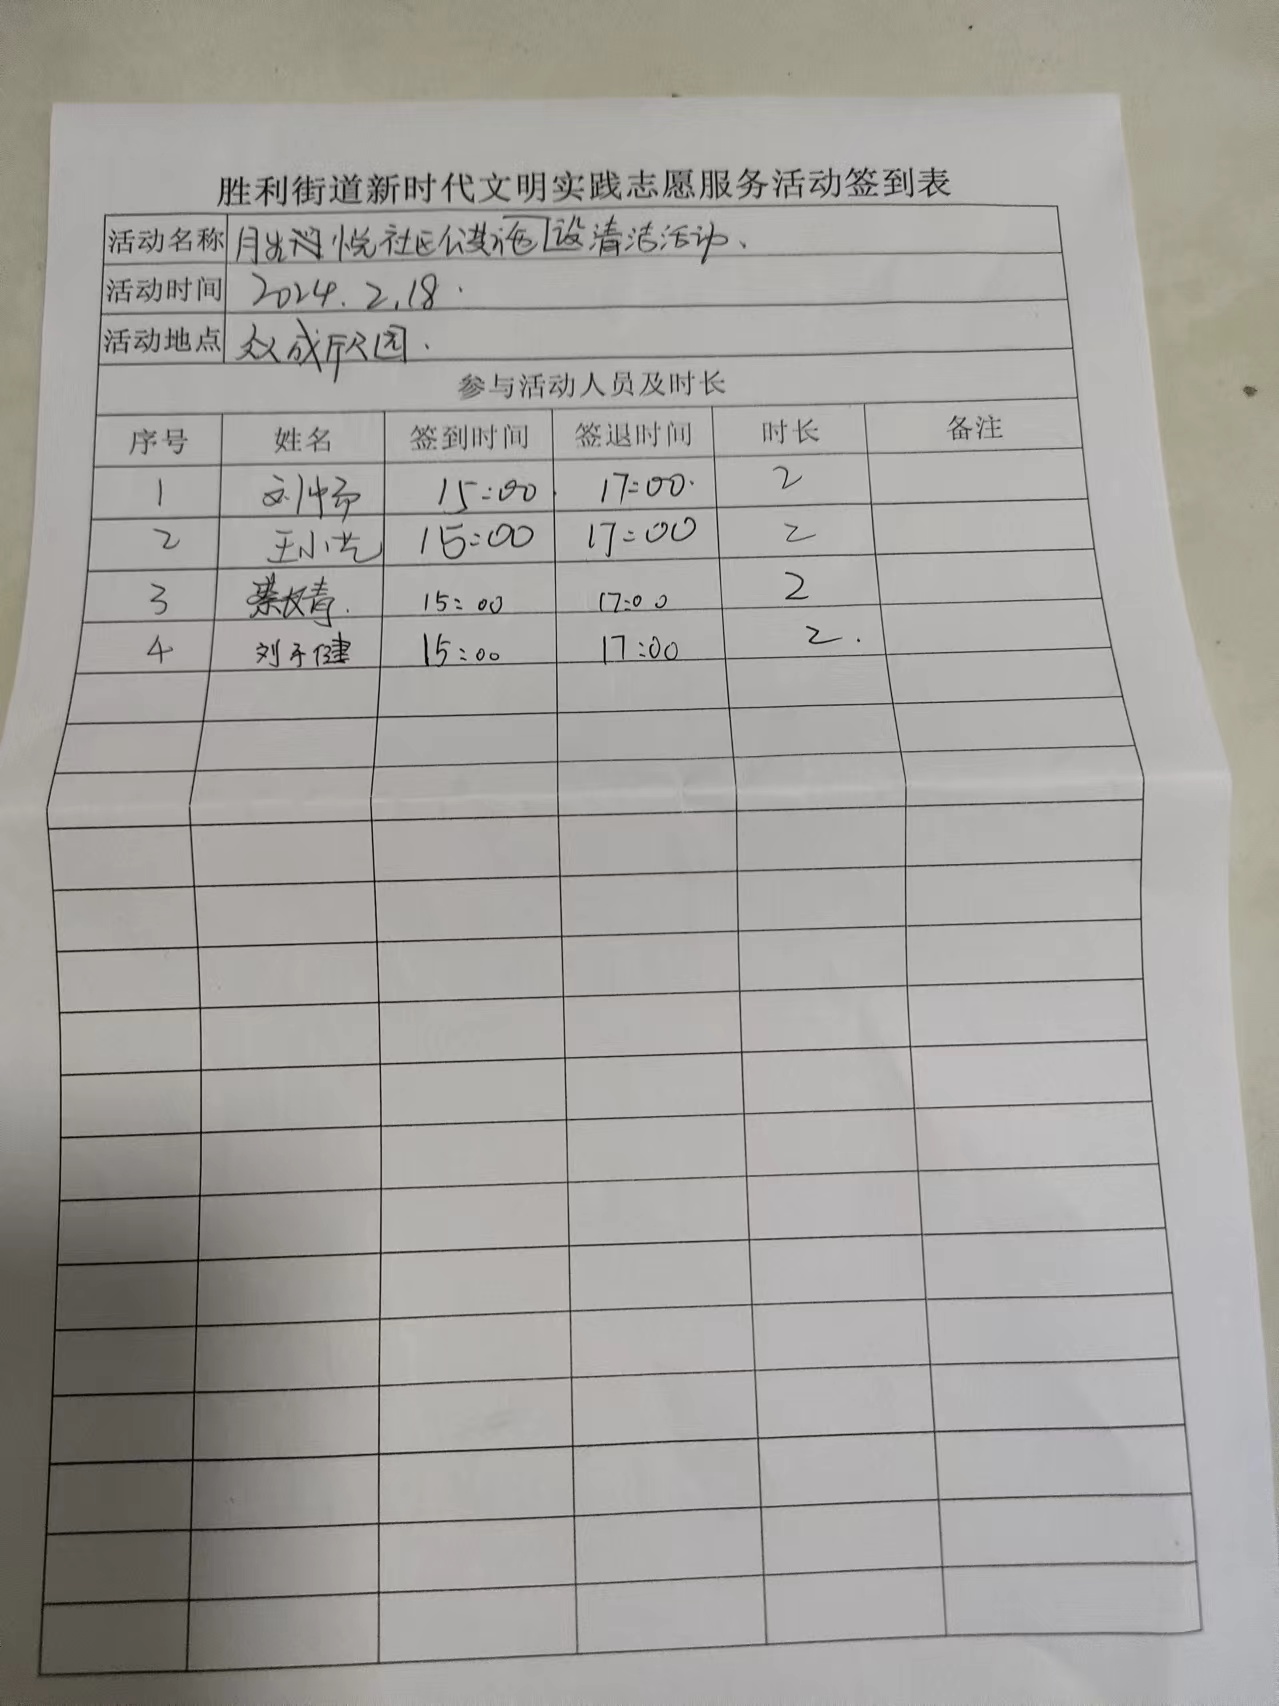 胜利街道新时代文明实践志愿服务活动签到表
活动名称 月光润悦社区公共设清洁活动、
活动时间 2024.2.18.
活动地点 众成欣园.
参与活动人员及时长
序号 姓名 签到时间 签退时间 时长 备注
1 15:00 17:00. 2
2 王小艺 15:00 17:00 2
3 青. 15:00 17:00 2
4 刘子健 15:00 17:00 2.